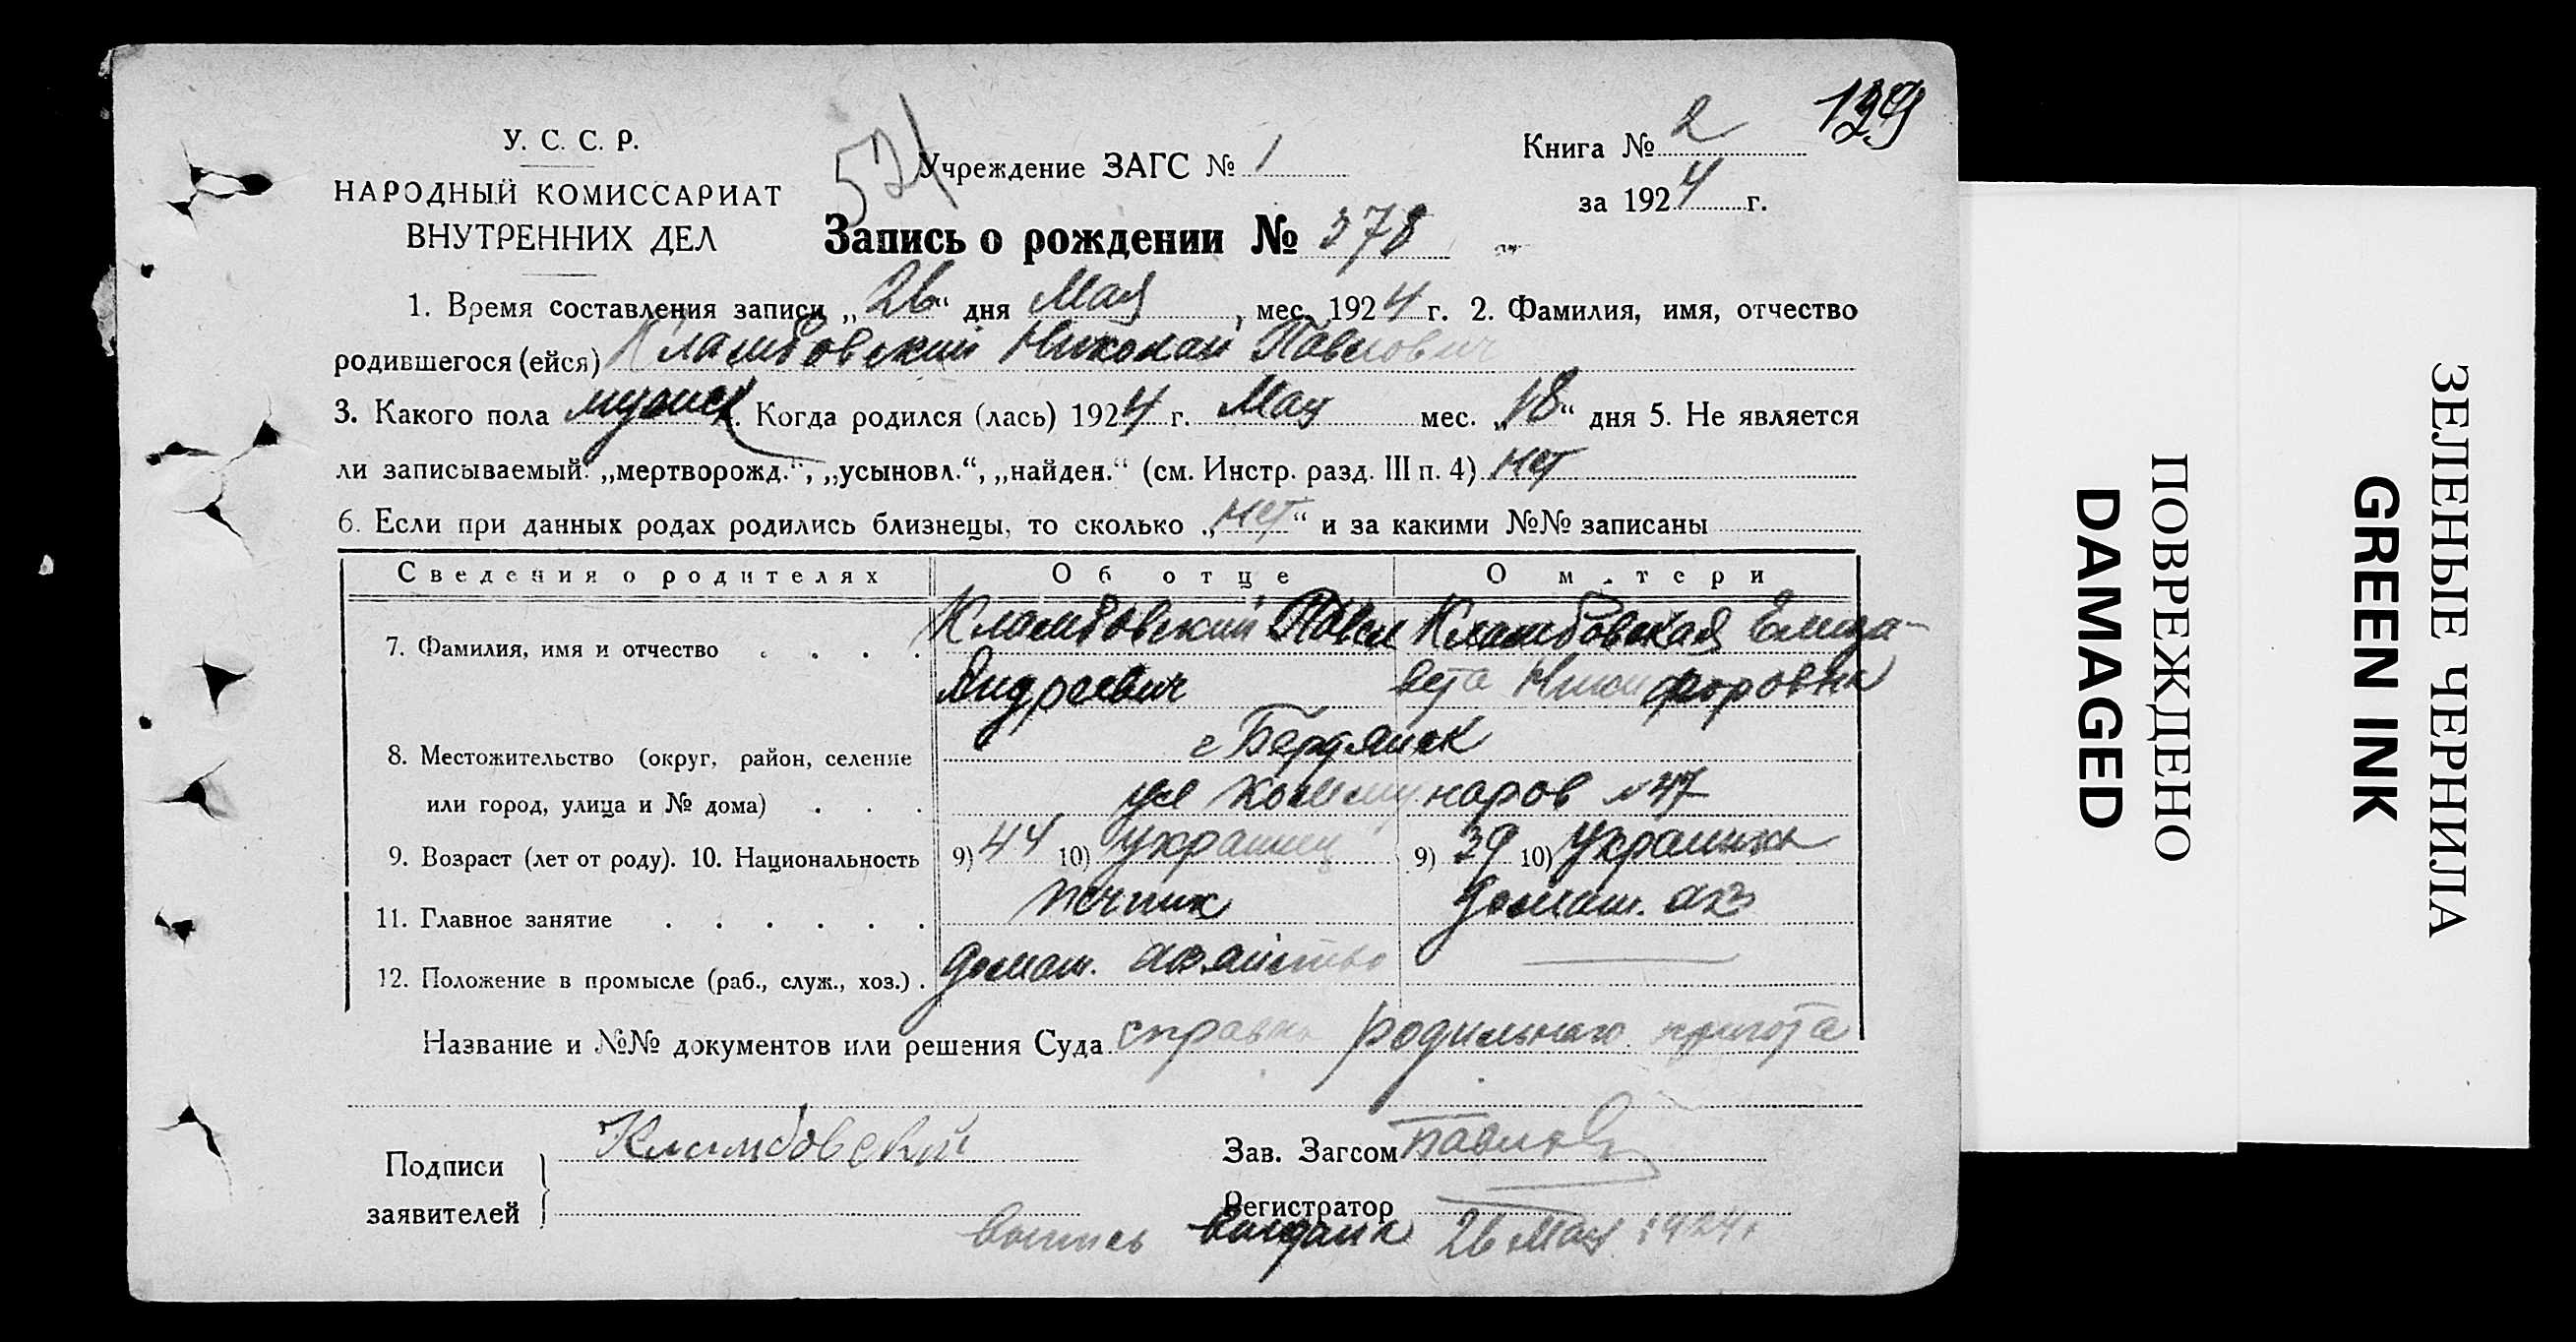 129
У. С. С. Р.
НАРОДНЫЙ КОМИССАРИАТ
ВНУТРЕННИХ ДЕЛ
521
Учреждение ЗАГС № 1
Книга № 2
за 1924 г.
Запись о рождении № 378
1. Время составления записи „26“ дня Мая, мес. 1924 г. 2. Фамилия, имя, отчество
родившегося (ейся) Кламбовский Николай Павлович
3. Какого пола мужск. Когда родился (лась) 1924 г. Мая мес. „18“ дня 5. Не является
ли записываемый: „мертворожд.“, „усыновл.“, „найден.“ (см. Инстр. разд. III п. 4) нет
6. Если при данных родах родились близнецы, то сколько „нет“ и за какими №№ записаны
Сведения о родителях Об отце О матери
7. Фамилия, имя и отчество Кламбовский Павел Кламбовская Елиза-
Андреевич вета Никифоровна
8. Местожительство (округ, район, селение г Бердянск
или город, улица и № дома) ул Коммунаров №47
9. Возраст (лет от роду). 10. Национальность 9) 44 10) украинец 9) 39 10) украинка
11. Главное занятие печник домаш. хоз
12. Положение в промысле (раб., служ., хоз.) домаш. хозяйство —
Название и №№ документов или решения Суда справка родильного приюта
Подписи заявителей Кламбовский
Зав. Загсом Павлов
Регистратор
выпись выдана 26 Мая 1924 г
ЗЕЛЕНЫЕ ЧЕРНИЛА
GREEN INK
ПОВРЕЖДЕНО
DAMAGED